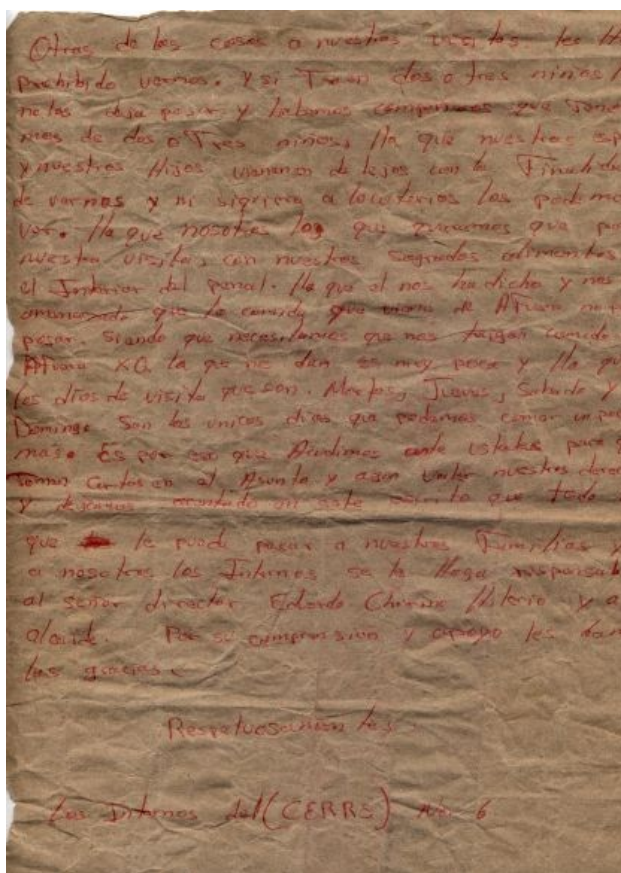 Otras de las cosas a nuestras visitas les
Prohibido vernos. Y si Traen dos o tres niños
no los deja pasar y habemos compañeros que
mas de dos o Tres niños, lla que nuestras
y nuestros Hijos vienen de lejos con la
de vernos y ni siquiera a locutorios los podemos
ver. lla que nosotros los que queremos que
nuestra visita, con nuestros sagrados alimentos
el Interior del penal. lla que el nos ha dicho y nos
que la comida que viene de Afuera no
pasar. Siendo que necesitamos que nos traigan comida
Afuera XQ. la que nos dan es muy poca y lla que
los días de visita que son. Martes, Jueves, Sabado y
Domingo Son los unicos dias que podemos comer un poco
mas. Es por eso que Acudimos ante ustedes para
tomen Cartas en el Asunto y agan valer nuestros
y dejamos asentado en este escrito que todo
que le puede pasar a nuestras Familias y
a nosotros los Internos se le Haga
al señor director Eduardo y
alcaide. Por su comprension y apoyo les
las gracias.
Respetuosamente
Los Internos del (CERRS) No. 6